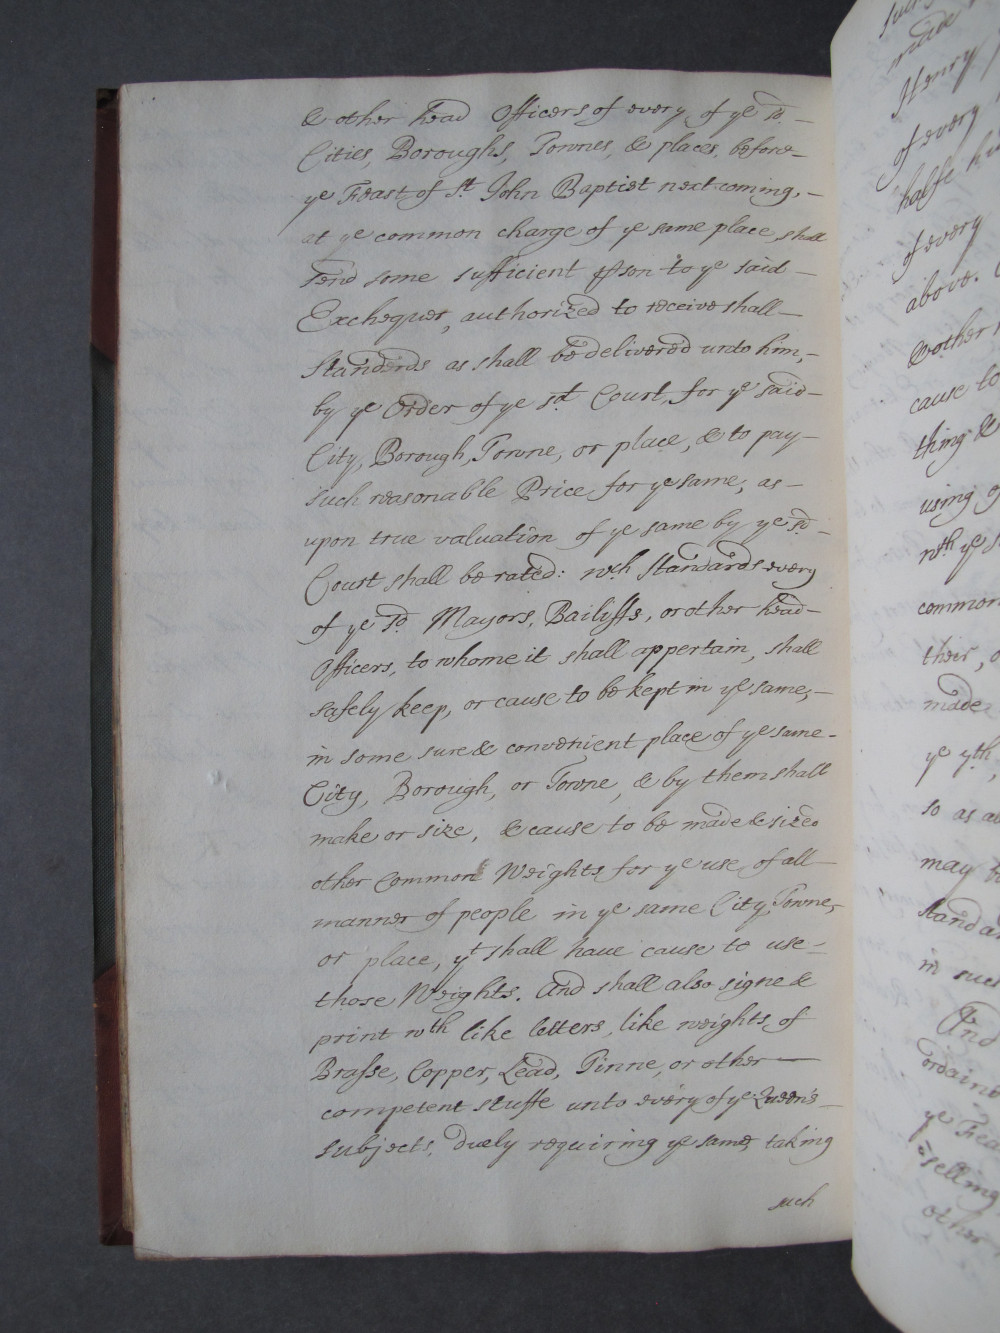 & other head Officers of every of ye sd
Cities, Boroughs, Townes, & places, before
ye Feast of St. John Baptist next coming,
at ye common charge of ye same place shall
send some sufficient pson to ye said
Exchequer, authorized to receive shall
Standerds as shall be delivered unto him,
by ye Order of ye sd Court, for ye said
City, Borough, Towne, or place, & to pay
such reasonable Price for ye same, as
upon true valuation of ye same by ye sd
Court shall be rated: wch Standards every
of ye sd Mayors, Bailiffs, or other head
Officers, to whome it shall appertain, shall
safely keep, or cause to be kept in ye same,
in some sure & convenient place of ye same
City, Borough, or Towne, & by them shall
make or size, & cause to be made & sized
other Common Weights for ye use of all
manner of people in ye same City, Towne,
or place, yt shall have cause to use
those Weights. And shall also signe &
print wth like letters, like weights of
Brasse, Copper, Lead, Tinne, or other
competent stuffe unto every of ye Queen's
subjects, duely requiring ye same, taking
such
made
Henry
of every
halfe
of every
above.
& other
cause to
thing &
using of
wth ye
common
their,
made
ye yth,
so as
may
in such
And
ye
selling
other